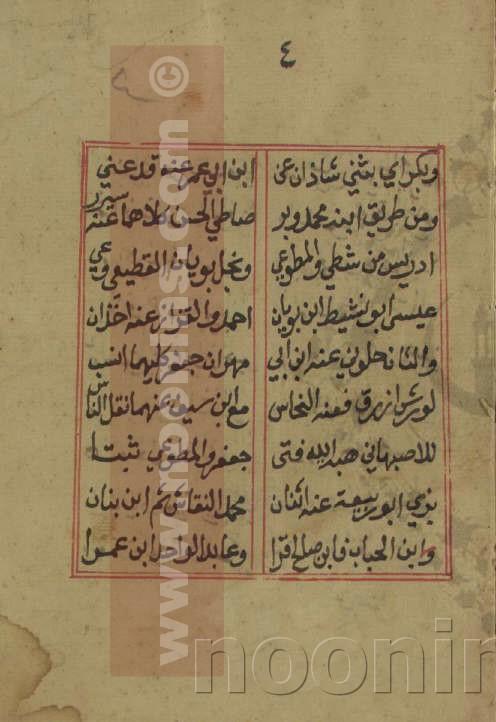 ٤
وبكراي بثني شاذان عن ابن ابي عمر عنه قد عني
ومن طريق ابنه محمد وبر صاطي الحسن كلاهما عنه
ادريس من شطي والمطوعي ونجل بويان القطيعي وعي
عيسى ابو نشيط ابن بويان احمد والقزاز عنه اخذان
والثان حلوني عنه ابن أبي مهران جعفر كليهما انسب
لورش ازرق فعنه النحاس مع ابن سيف عنهما نقل الناس
للاصبهاني هبة الله فتى جعفر والمطوعي ثبتا
بزي ابو ربيعة عنه اثنان محمد النقاش ثم ابن بنان
وابن الحباب فابن صالح اقرا وعابد الواحد ابن عمرا
www.noorlib
noonin